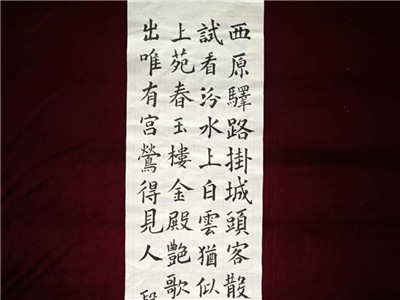 西原驛路掛城頭客散
試看汾水上白雲猶似
上苑春玉樓金殿艷歌
出唯有宮鶯得見人